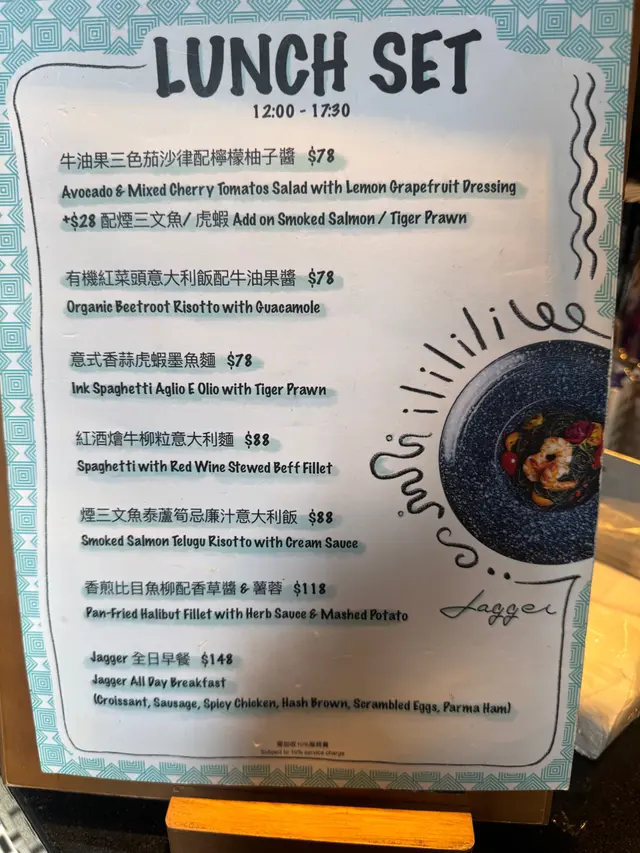 LUNCH SET
12:00 - 17:30
牛油果三色茄沙律配檸檬柚子醬 $78
Avocado & Mixed Cherry Tomatos Salad with Lemon Grapefruit Dressing
+$28 配煙三文魚/ 虎蝦 Add on Smoked Salmon / Tiger Prawn
有機紅菜頭意大利飯配牛油果醬 $78
Organic Beetroot Risotto with Guacamole
意式香蒜虎蝦墨魚麵 $78
Ink Spaghetti Aglio E Olio with Tiger Prawn
紅酒燴牛柳粒意大利麵 $88
Spaghetti with Red Wine Stewed Beff Fillet
煙三文魚泰蘆筍忌廉汁意大利飯 $88
Smoked Salmon Telugu Risotto with Cream Sauce
香煎比目魚柳配香草醬 & 薯蓉 $118
Pan-Fried Halibut Fillet with Herb Sauce & Mashed Potato
Jagger
Jagger 全日早餐 $148
Jagger All Day Breakfast
(Croissant, Sausage, Spicy Chicken, Hash Brown, Scrambled Eggs, Parma Ham)
需加收10%服務費
Subject to 10% service charge